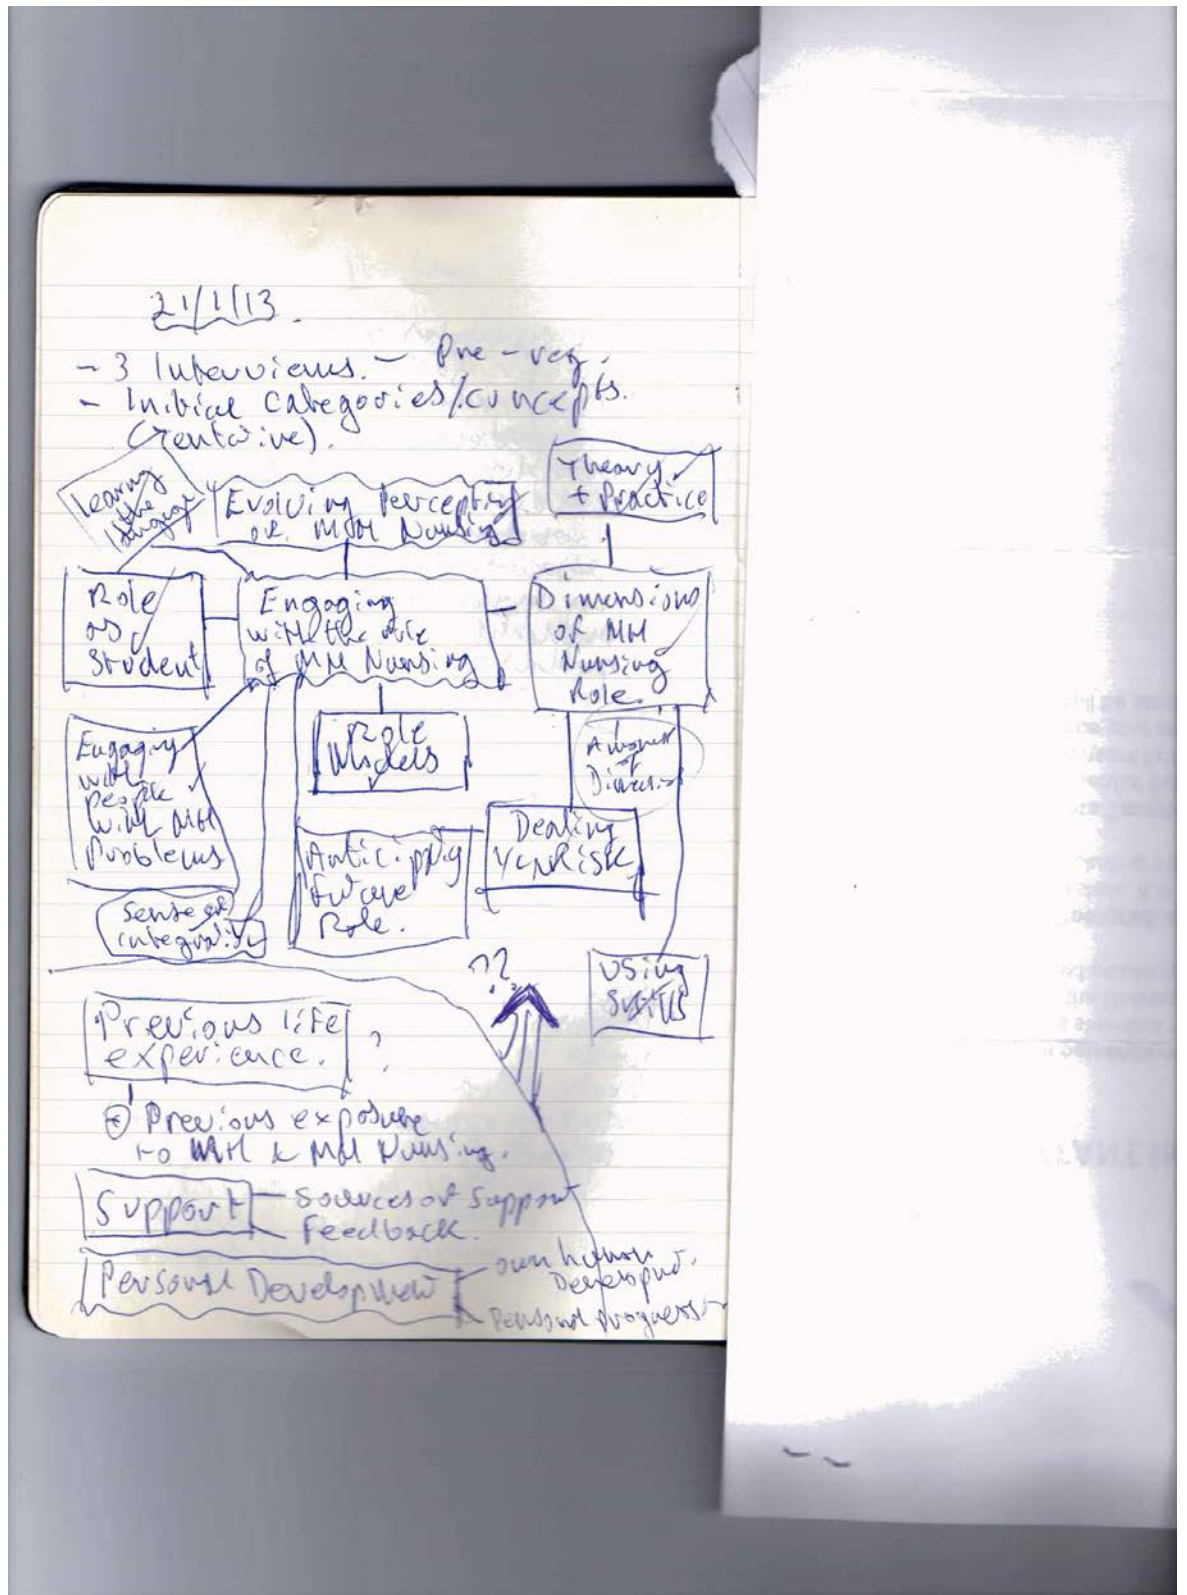 21/1/13.
- 3 Interviews. - Pre-reg.
- Initial Categories/concepts.
(Tentative).
Learning
the
language
Evolving Perception
of MH Nursing
Theory
+ Practice
Role
as
Student
Engaging
with the role
of MH Nursing
Dimensions
of MH
Nursing
Role.
Engaging
with
people
with MH
Problems
Role
Models
of
Anticipating
Future
Role.
Dealing
Risk
Sense of
Using
Skills
??
Previous life
experience.
?
Previous exposure
to MH & MH Nursing.
Support
- Sources of support
- Feedback.
Personal Development
- own human
Developmt.
Personal progress